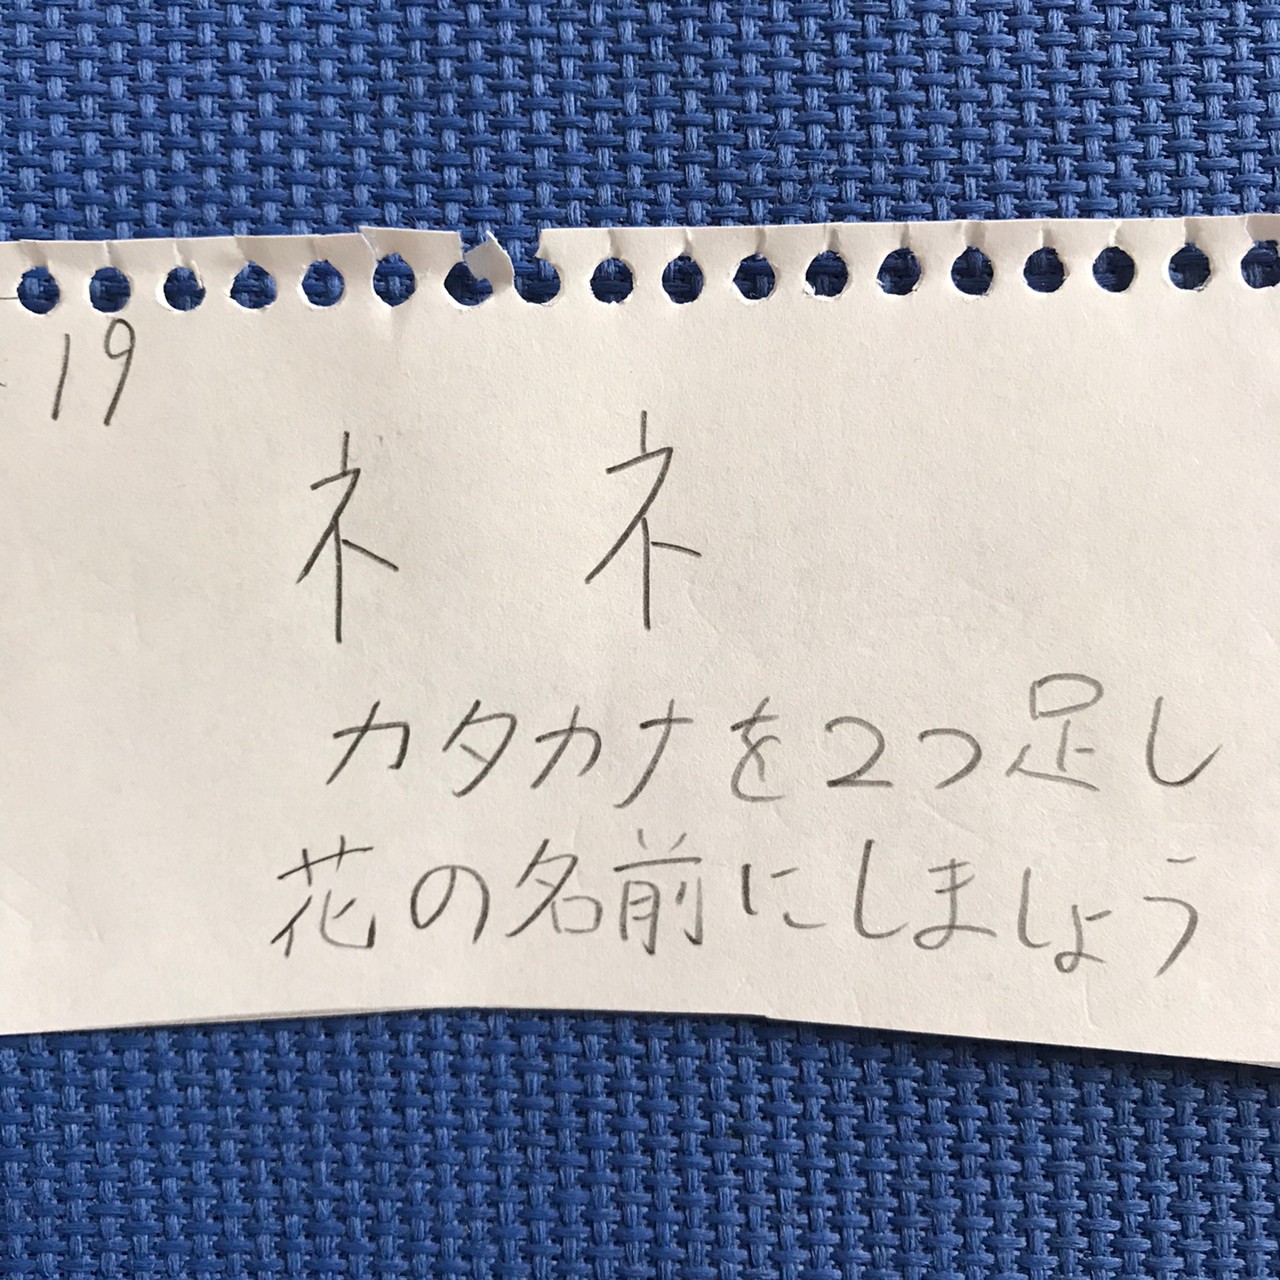 19
ネ ネ
カタカナを2つ足し
花の名前にしましょう